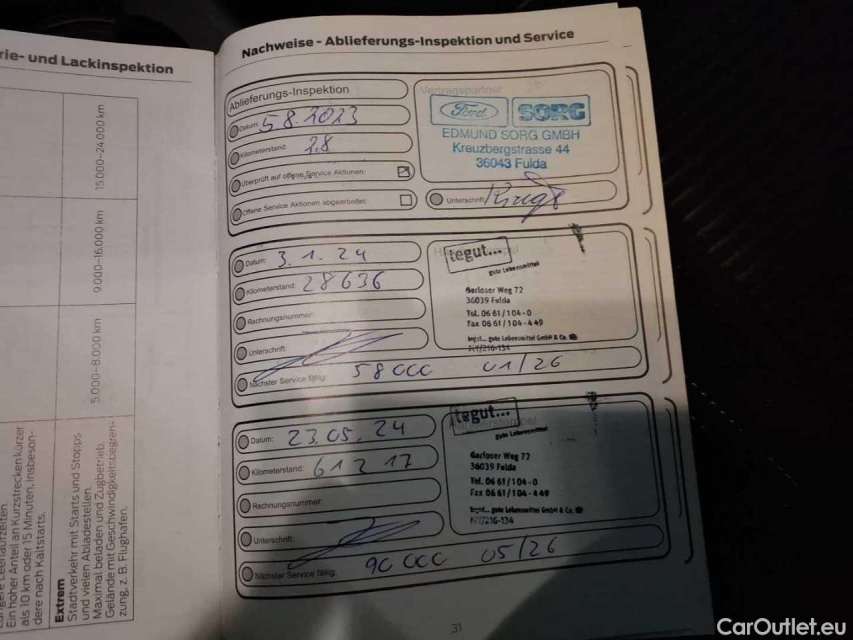 rie- und Lackinspektion
15.000–24.000 km
9.000–16.000 km
5.000–8.000 km
Ein hoher Anteil an Kurzstrecken kürzer
als 10 km oder 15 Minuten, insbeson-
dere nach Kaltstarts.
Extrem
Stadtverkehr mit Starts und Stopps
und vielen Abladestellen.
Maximal beladen und Zugbetrieb.
Gelände mit Geschwindigkeitsbegren-
zung, z. B. Flughäfen.
Nachweise - Ablieferungs-Inspektion und Service
Ablieferungs-Inspektion
Datum: 5.8.2023
Kilometerstand: 28
Überprüft auf offene Service Aktionen:
Offene Service Aktionen abgearbeitet:
Vertragspartner
Ford SORG
EDMUND SORG GMBH
Kreuzbergstrasse 44
36043 Fulda
Unterschrift:
Datum: 3.1.24
Kilometerstand: 28636
Rechnungsnummer:
Unterschrift:
Nächster Service fällig: 58000 01/26
tegut...
gute Lebensmittel
Gerloser Weg 72
36039 Fulda
Tel. 06 61/104-0
Fax 06 61/104-449
tegut... gute Lebensmittel GmbH & Co.
Datum: 23.05.24
Kilometerstand: 61217
Rechnungsnummer:
Unterschrift:
Nächster Service fällig: 90000 05/26
tegut...
gute Lebensmittel
Gerloser Weg 72
36039 Fulda
Tel. 06 61/104-0
Fax 06 61/104-449
tegut... gute Lebensmittel GmbH & Co.
31
CarOutlet.eu